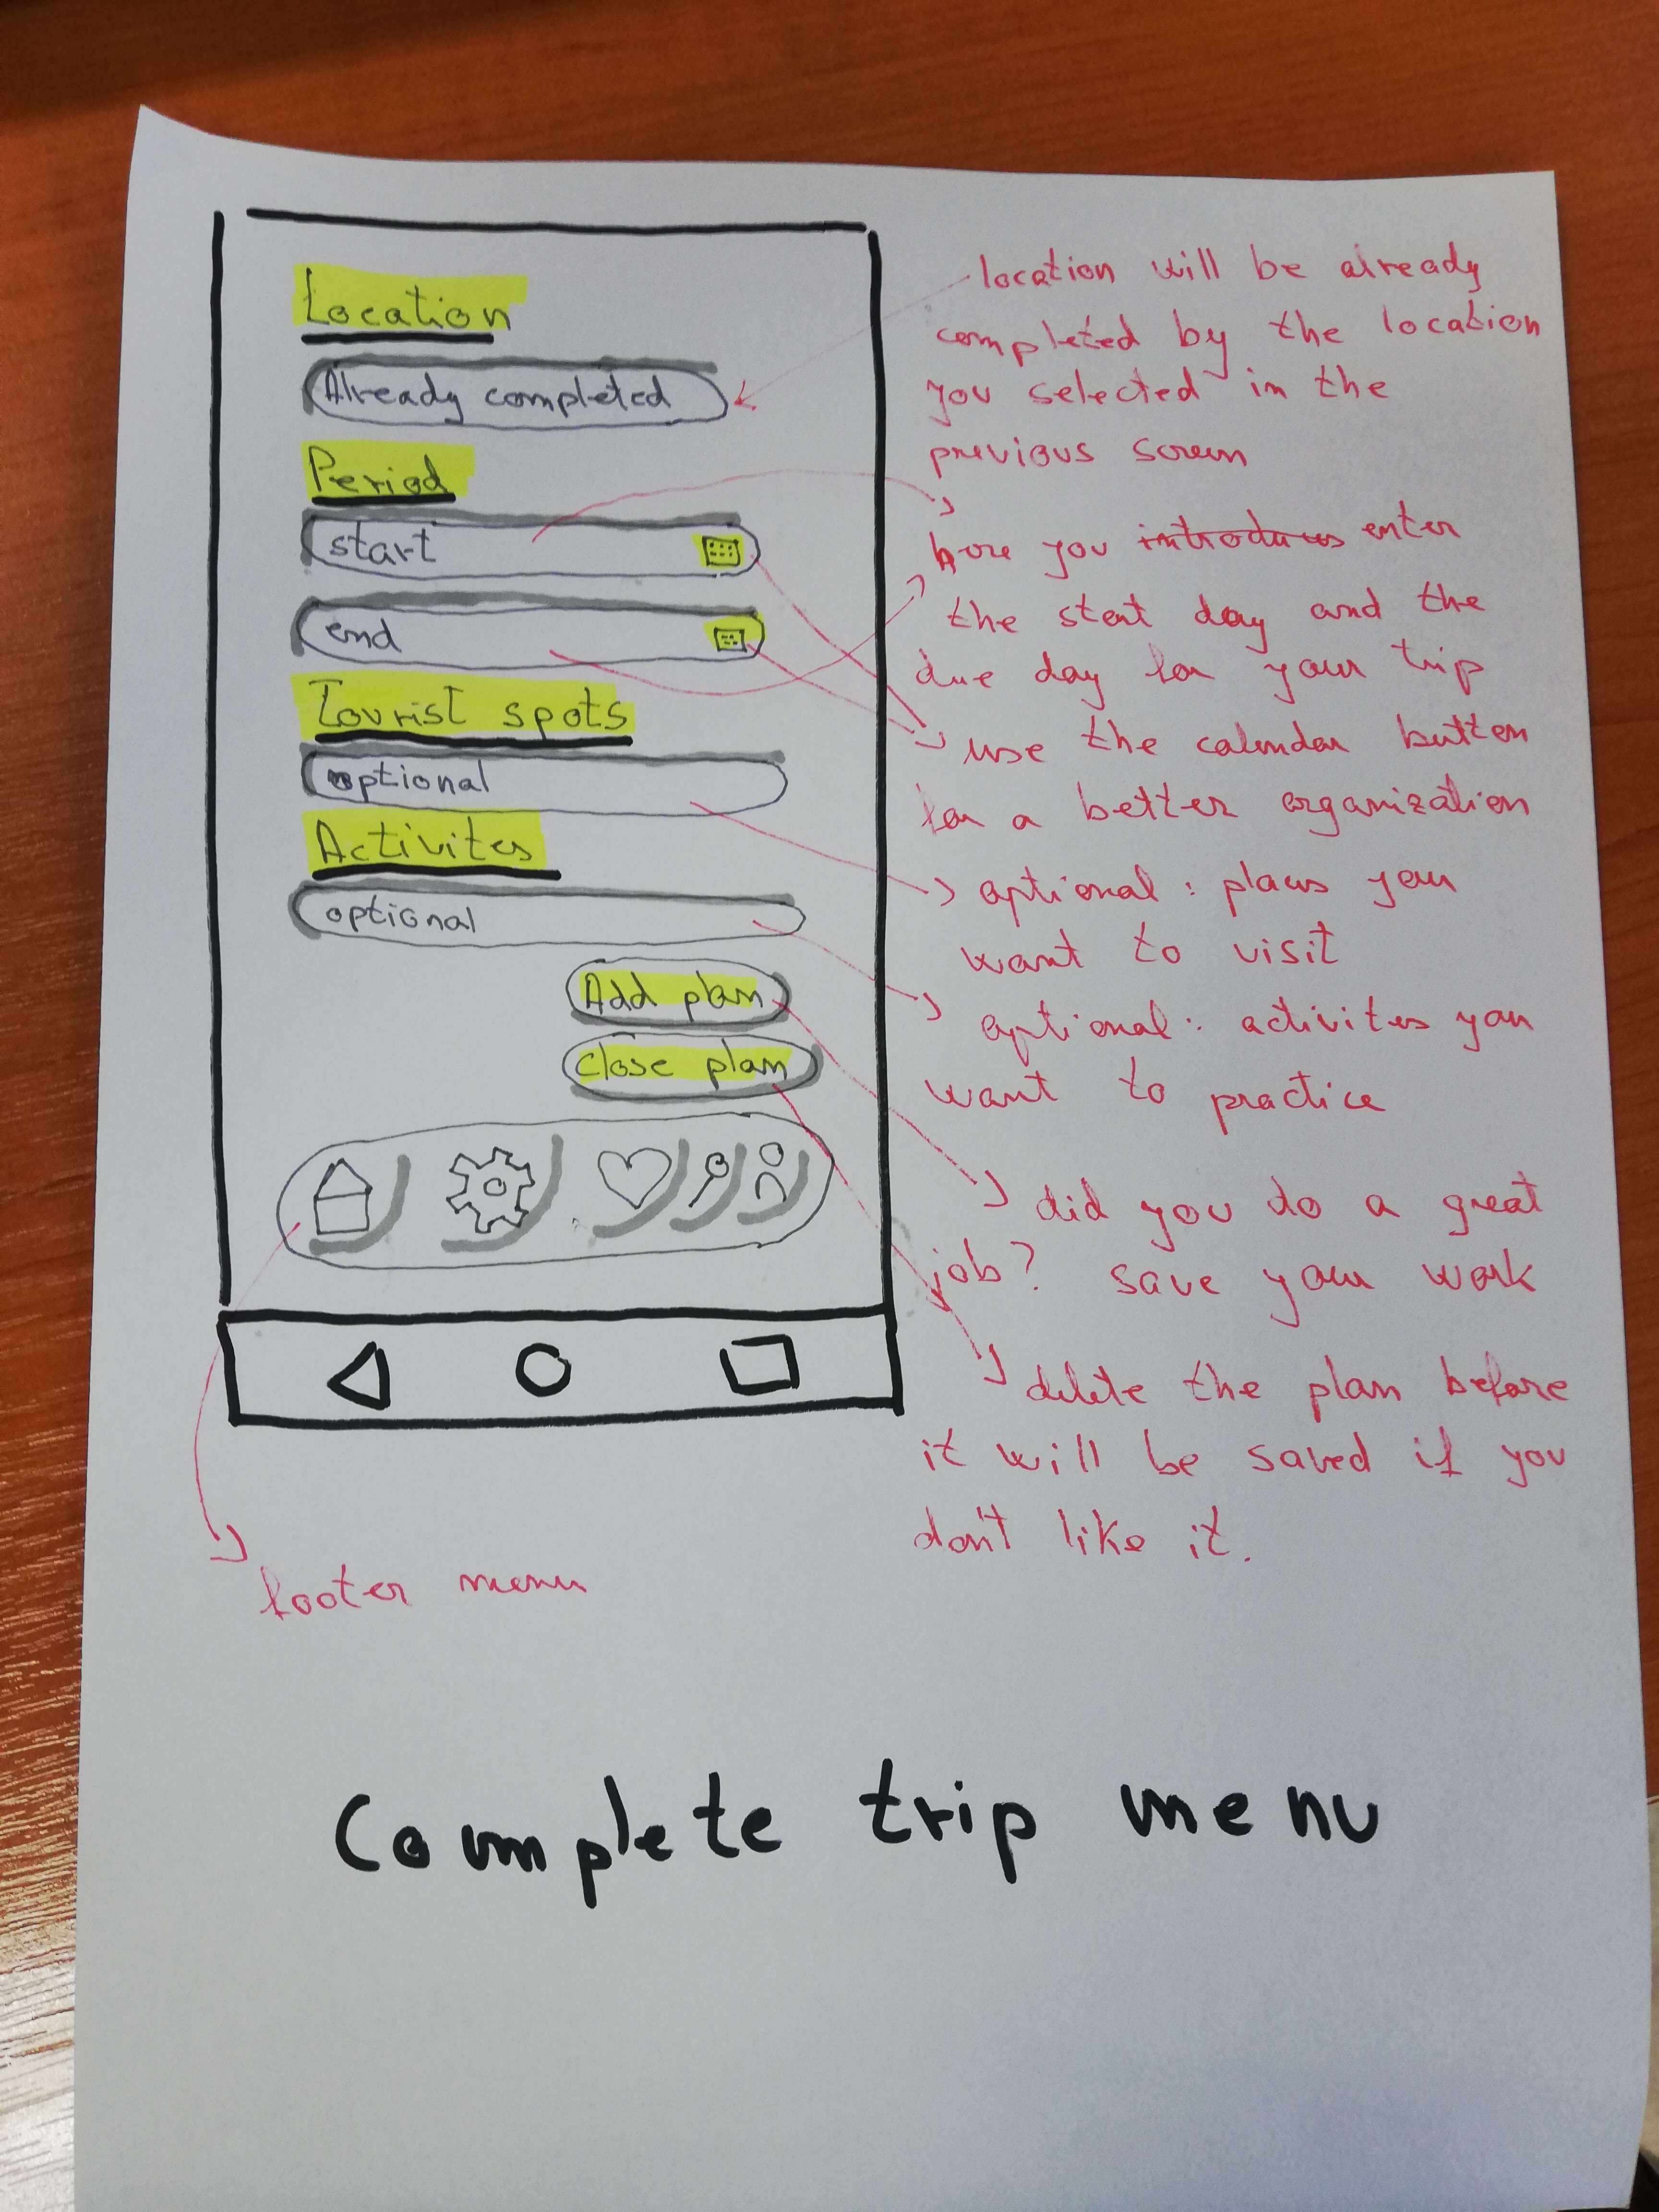 Location
Already completed
Period
start
end
Tourist spots
optional
Activites
optional
Add plan
close plan
location will be already
completed by the location
you selected in the
previous screen
here you introduces enter
the start day and the
due day for your trip
use the calendar button
for a better organization
optional: places you
want to visit
optional: activites you
want to practice
did you do a great
job? save your work
delete the plan before
it will be saved if you
don't like it.
footer menu
Complete trip menu